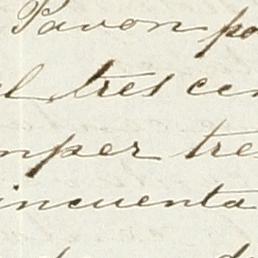 Pavon po
el tres cen
mper tre
incuenta